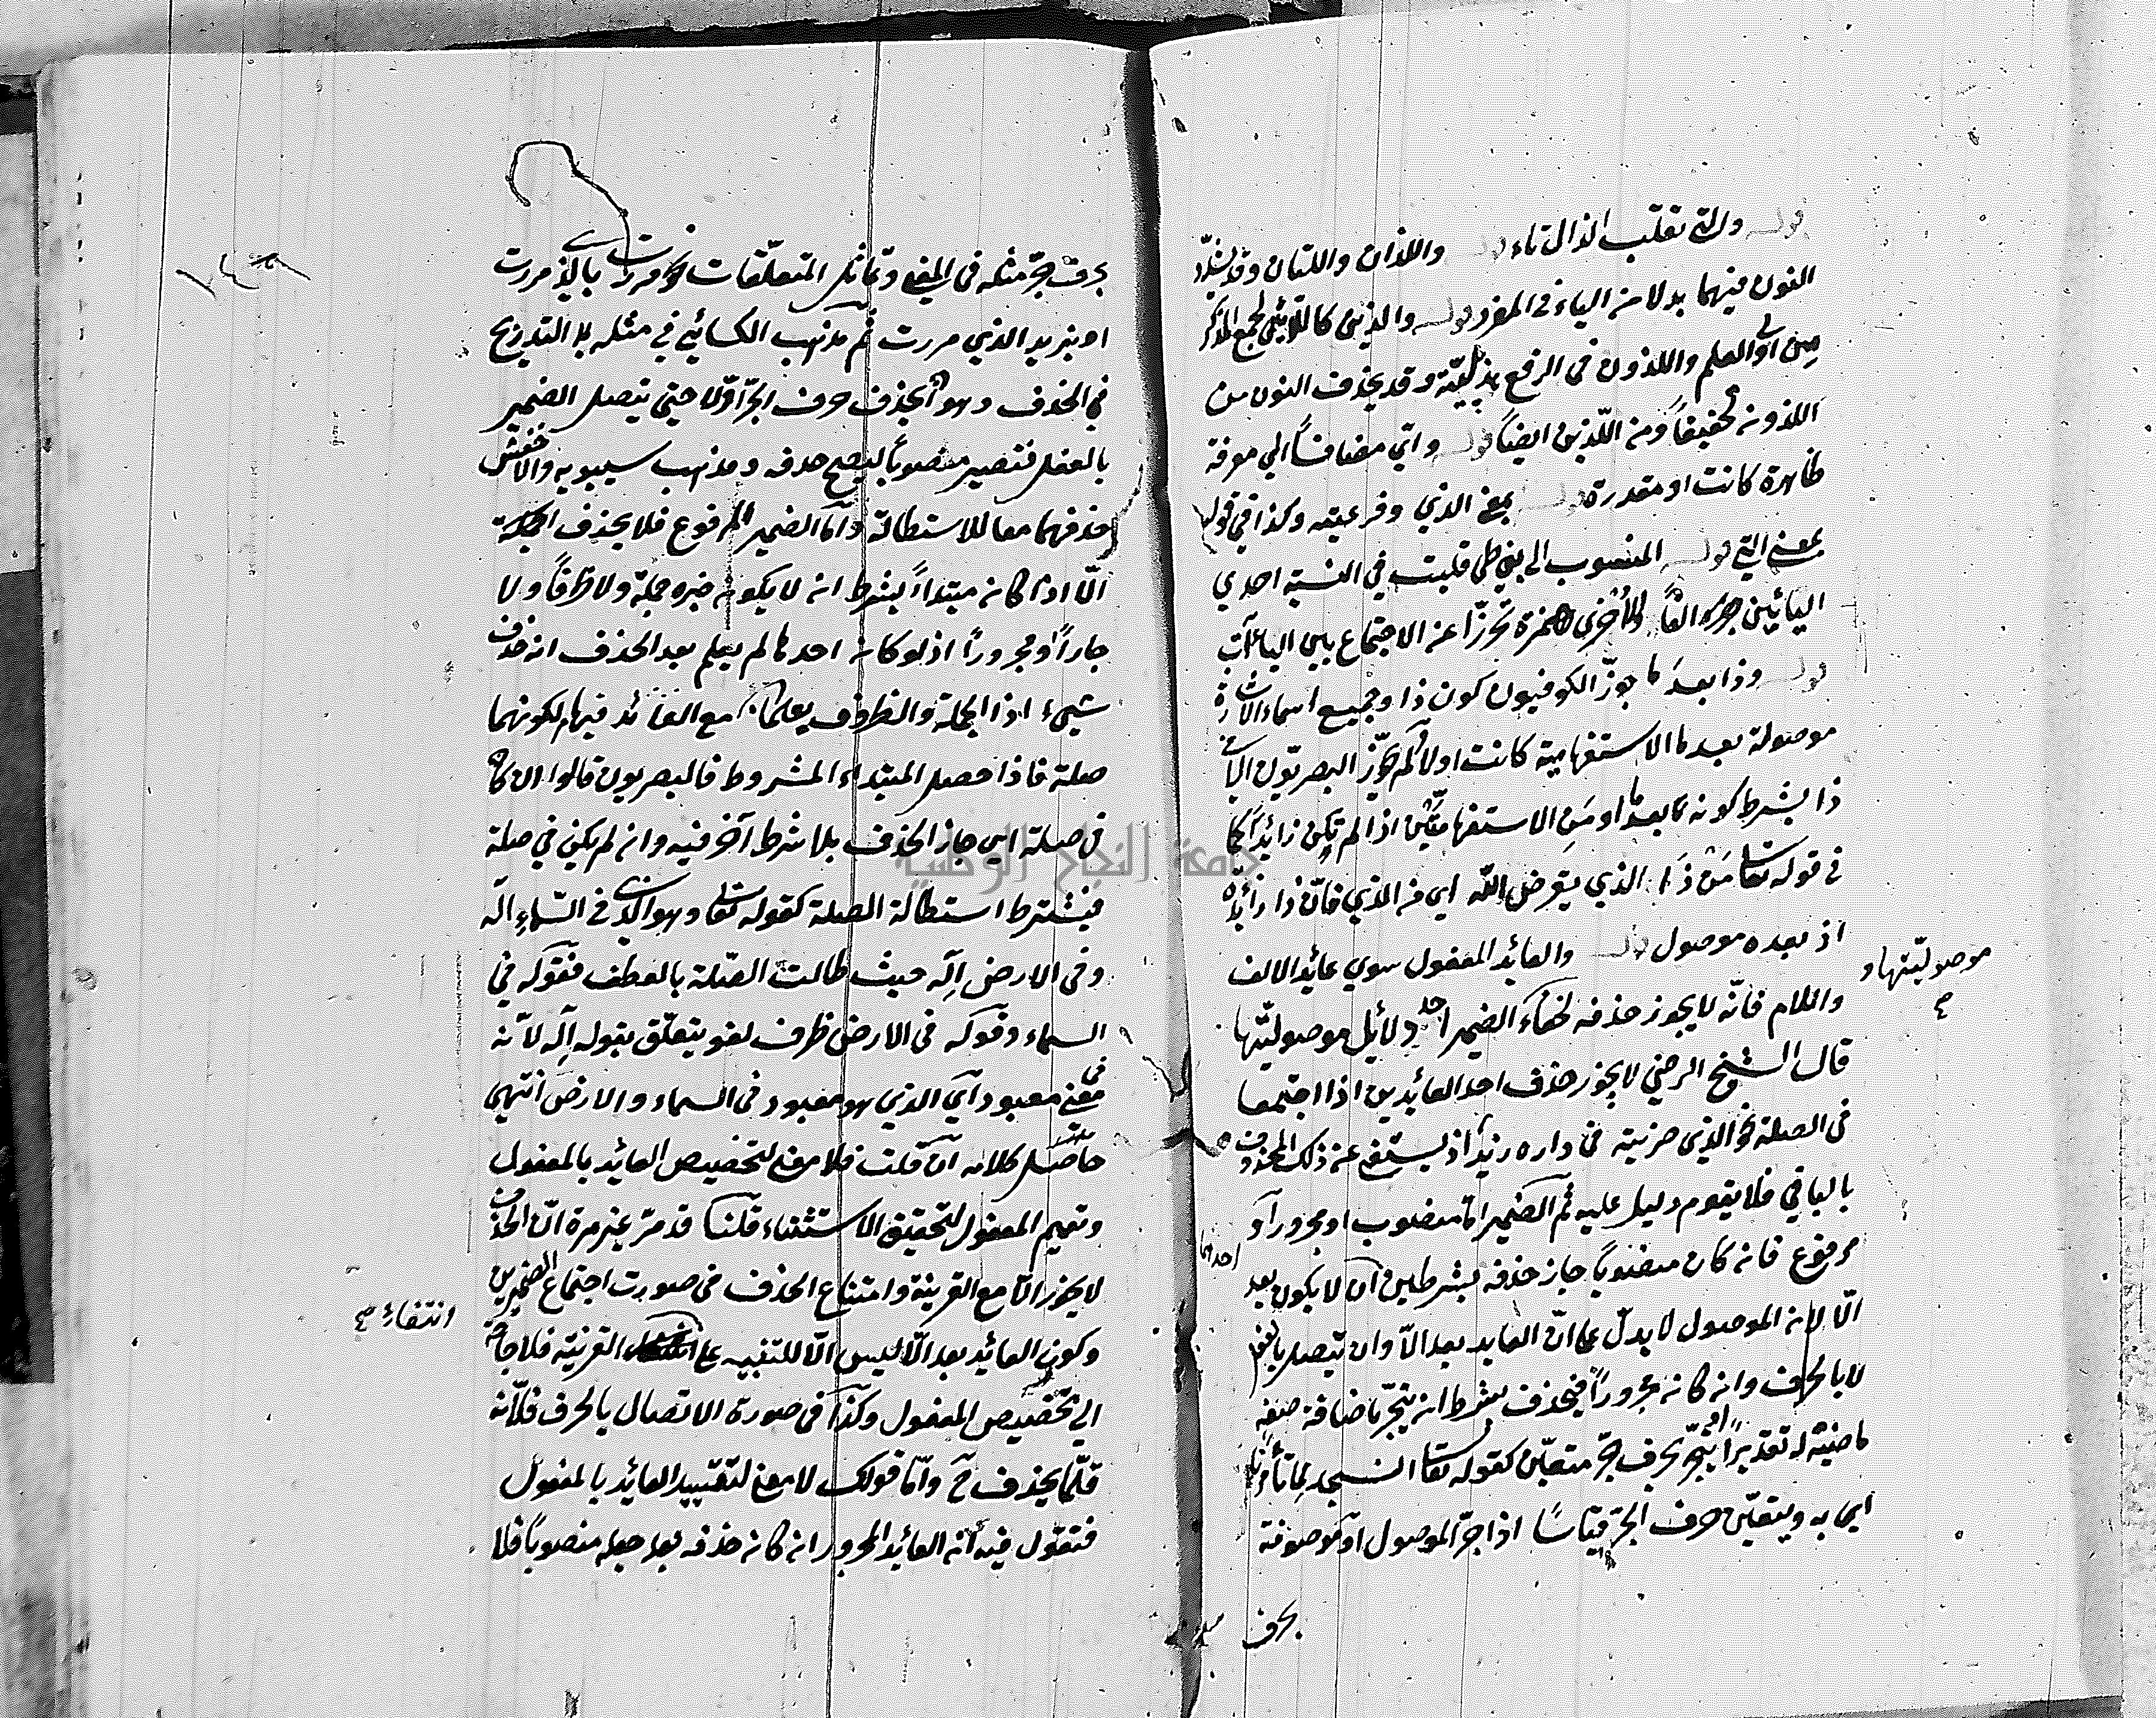 قوله والتي تقلب الذال تاء قوله واللذان واللتان وقد يشدّد
النون فيهما بدلا من الياء في المفرد قوله والذين كاللائين لجمع المذكر
من اولى العلم واللذون في الرفع هذيلية وقد يحذف النون من
اللذون تخفيفاً ومن اللّذين ايضاً قوله واىّ مضافاً الى معرفة
ظاهرة كانت او مقدرة قوله بمعنى الذي وفرعيته وكذا في قوله
بمعنى التي قوله المنسوب الى بني طي قلبت في النسبة احدي
اليائين الفاً والأخرى همزة تحرّزاً عن الاجتماع بين اليائات
قوله وذا بعد ما جوّز الكوفيون كون ذا وجميع اسماء الاشارة
موصولة بعد ما الاستفهامية كانت اولا ولم يجوّز البصريّون الا في
ذا بشرط كونه بعد ما او من الاستفهاميّتين اذا لم يكن زائداً كما
في قوله تعا مَنْ ذَا الذي يقرض اللّه اي من الذي فانّ ذا زائدة
اذ بعده موصول قوله والعائد المفعول سوي عائد الالف
واللام فانّه لا يجوز حذفه لخفاء الضمير احد دلائل موصوليّتها
موصوليّتها و
قال الشيخ الرضي لا يجوز حذف احد العائدين اذا اجتمعا
في الصلة نحو الذى ضربته في داره زيد اذ يستغنى عن ذلك المحذوف
بالباقي فلا يقوم دليل عليه ثم الضمير امّا منصوب او مجرور او
مرفوع فان كان منصوباً جاز حذفه بشرطين احدهما ان لا يكون بعد
الّا لانه الموصول لا يدلّ على انّ العايد بعد الّا وان يتصل بالفعل
لا بالحرف وان كان مجروراً فيحذف بشرط ان ينجرّ باضافة صفة
ناصبة له تقديراً او ينجرّ بحرف جرّ متعيّن كقوله تعا انسجد لما تأمرنا
اي به ويتعيّن حرف الجرّ قياسًا اذا جرّ الموصول او موصوفة
بحرف
بحرف جرّ مثله في المعنى وتماثل المتعلّقات نحو مررت بالذي مررت
او بزيد الذي مررت ثم مذهب الكسائي في مثله بلا التدريج
في الحذف وهو ان يحذف حرف الجرّ اوّلا حتى يتصل الضمير
بالفعل فتصير منصوباً ليصح حذفه ومذهب سيبويه والاخفش
حذفهما معا للاستطالة وامّا الضمير المرفوع فلا يحذف
الّا اذا كان مبتداءً بشرط ان لا يكون خبره جملة ولا ظرفاً ولا
جاراً ومجروراً اذ لو كان احدها لم يعلم بعد الحذف انه حذف
شيء اذ الجملة والظروف مع العائد فيها لكونهما
صلة فاذا حصل المبتداء المشروط فالبصريون قالوا ان كان
في صلة اىّ جاز الحذف بلا شرط آخر فيه وان لم يكن في صلة
فيشترط استطالة الصلة كقوله تعا وهو الذي في السّماء اله
وفي الارض اِلَه حيث طالت الصّلة بالعطف فقوله في
السماء وقوله في الارض ظرف لغو يتعلّق بقوله اِله لانّه
في معنى معبود اي الذي هو معبود في السماء والارض انتهى
حاصل كلامه ان قلت فلا معنى لتخصيص العائد بالمفعول
وتعميم المفعول لتحقيق الاستثناء قلنا قد مرّ غير مرة انّ الحذف
لا يجوز الّا مع القرينة وامتناع الحذف في صورت اجتماع الضميرين
وكون العائد بعد الّا ليس الّا للتنبيه على القرينة فلا حاجة
انتفاء
الى تخصيص المفعول وكذا في صورة الاتصال بالحرف فلانّه
قلّما يحذف ح وامّا قولك لا معنى لتقييد العائد بالمفعول
فتقول فيه انّ العائد المجرور ان كان حذفه بعد جعله منصوباً فلا
جامعة النجاح الوطنية